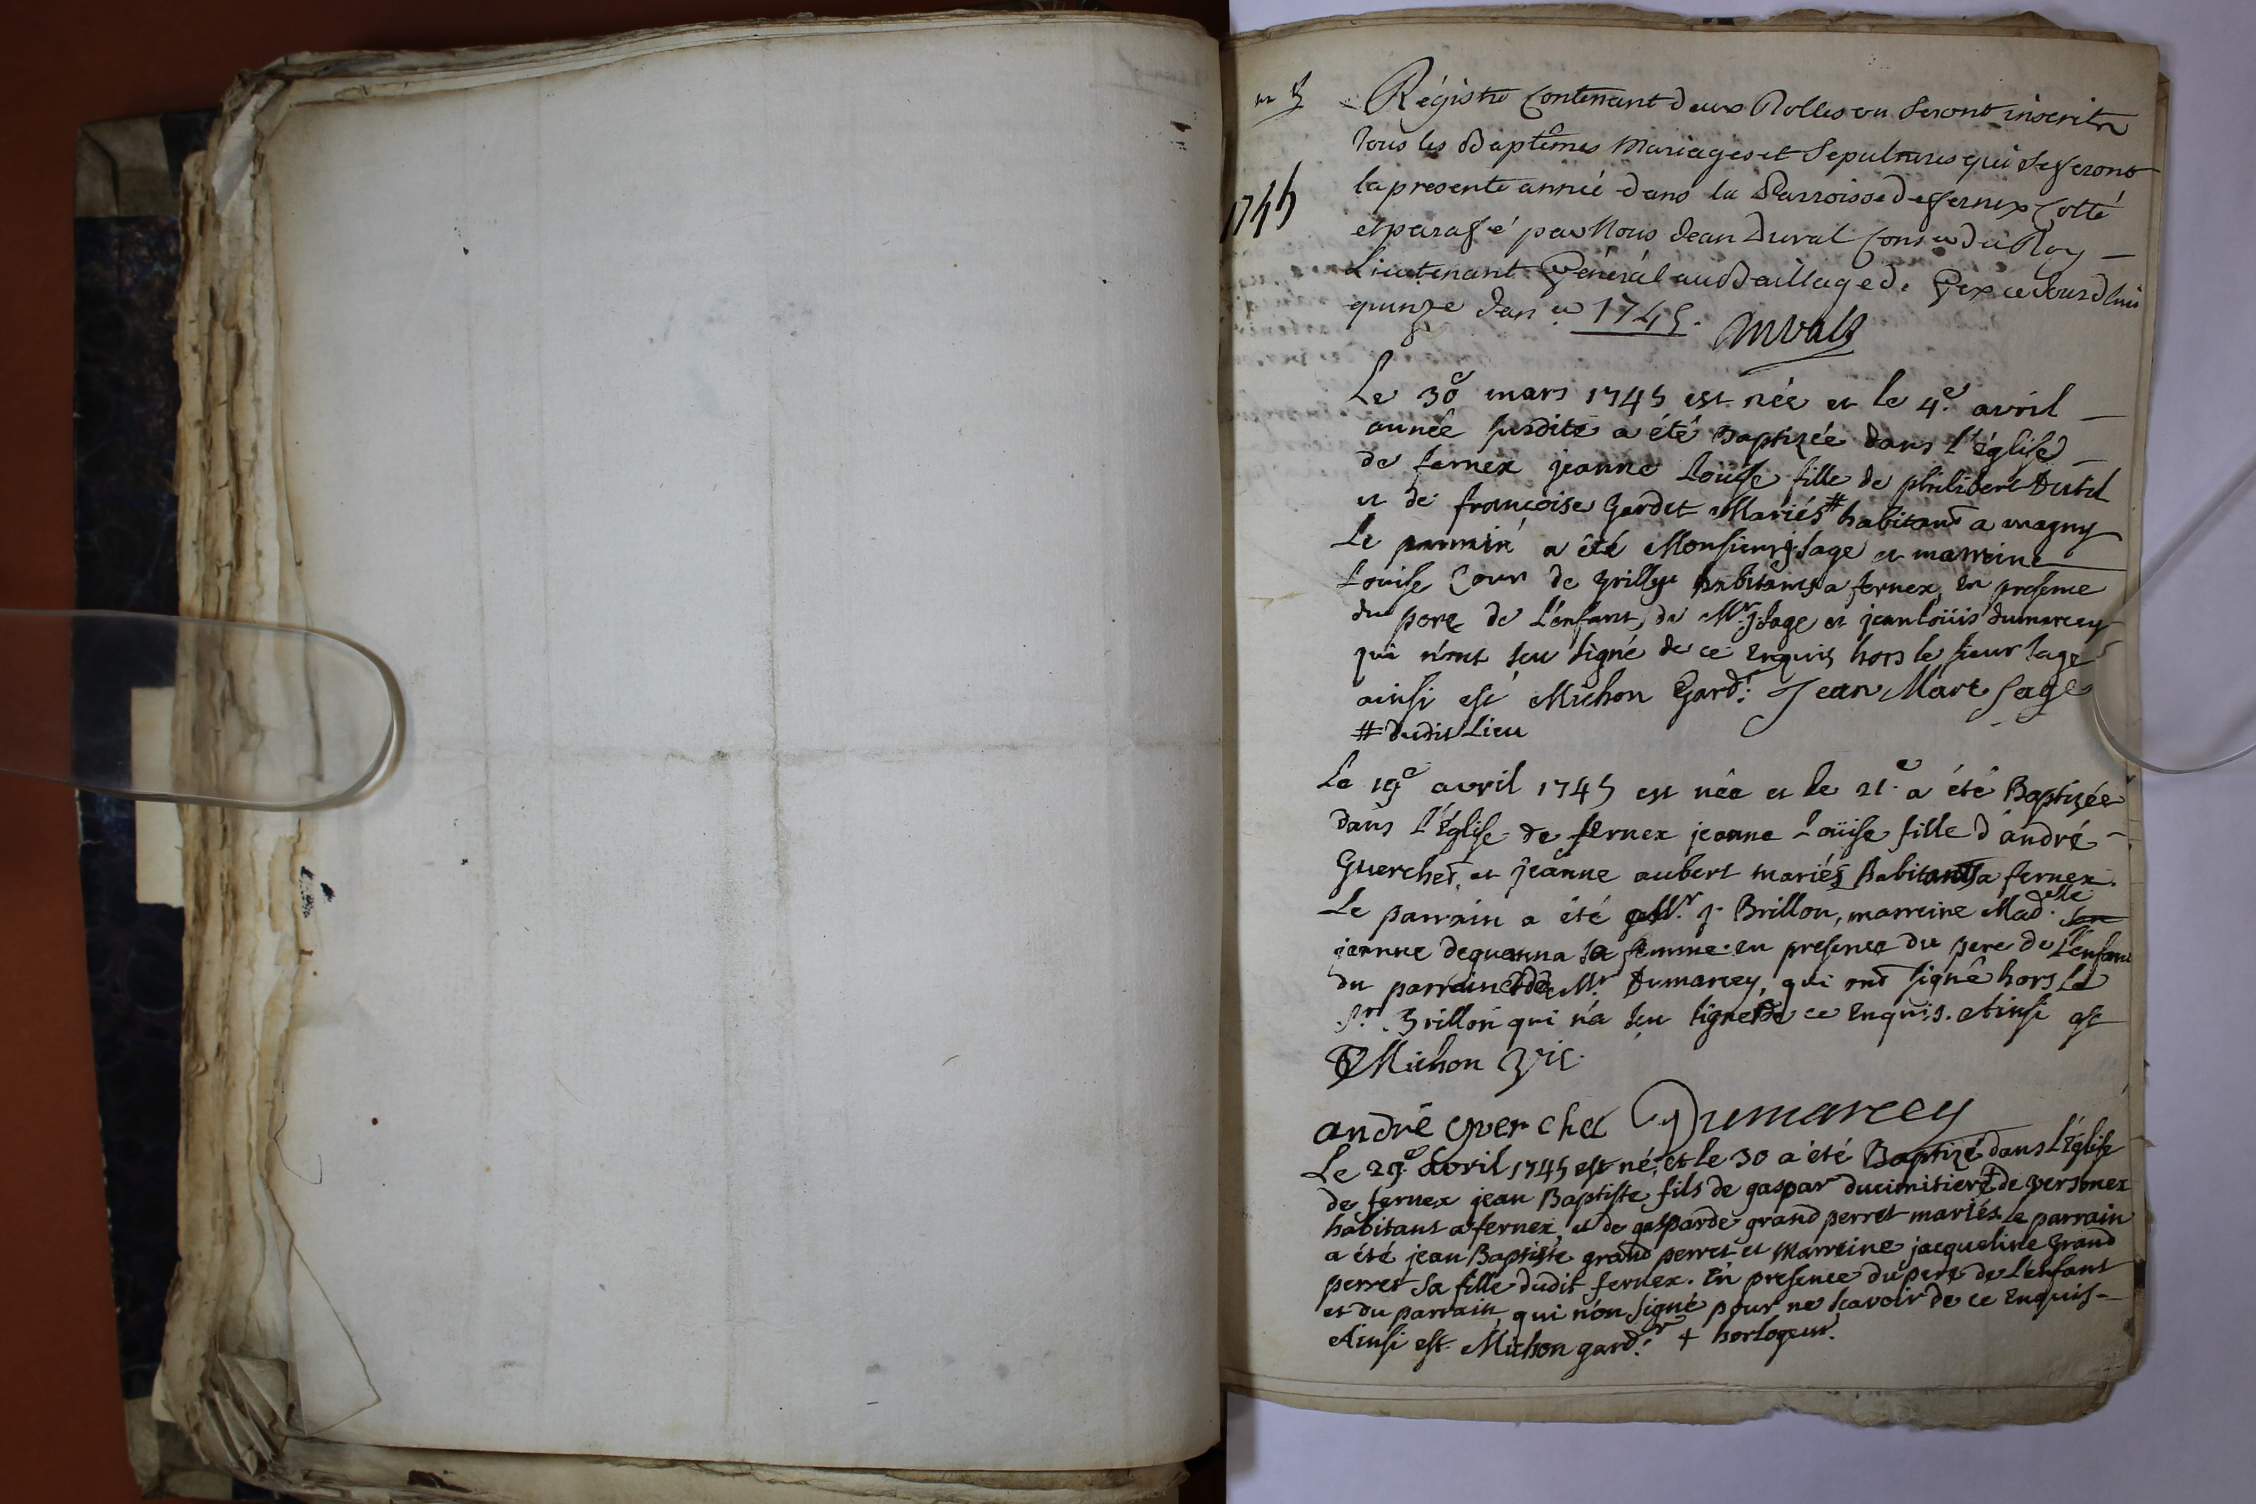 Régistre Contenant deux Rolles ou Seront inscrits
Tous les Baptêmes Mariages et Sepultures qui se feront
la presente année dans la Parroisse de fernex Cotté
et parafé par Nous Jean Duval Cons.er du Roy
1745
Lieutenant Général au Bailliage de Gex ce Jourdhui
quinze Jan.er 1745. Duval
Le 30e mars 1745 est née et le 4.e avril
année susdite a été Baptizée dans l'église
de fernex jeanne Louïse fille de philibert Dutil
et de françoise gardet Mariés # habitans a magny
Le parrain a été Monsieur j. sage et marreine
Louïse Cour de habitants a fernex, en presence
du pere de l'enfant, de Mr. j. sage et jean loüis dumarcey
qui n'ont sçu signé de ce enquis hors le sieur sage
ainsi est Michon Gard.r Jean Marc Sage
# dudit Lieu
Le 19e avril 1745 est née et le 21.e a été Baptizée
dans l'Église de fernex jeanne Loüise fille d'andré
Guerchet, et jeanne aubert mariés habitants a fernex.
Le parrain a été Mr. j. Brillon, marreine Mad.elle
jeanne dequanna sa femme. en presence du pere de L'enfant
du parrain et de Mr Dumarcey, qui ont signé hors Le
Sr. Brillon qui n'a sçu signer de ce enquis. Ainsi est
Michon Vic.
andré Guerchet Dumarcey
Le 29.e Avril 1745 est né, et le 30 a été Baptizé dans l'Église
de fernex jean Baptiste fils de gaspar ducimitiere + de versonex
habitant a fernex, et de gasparde grand perret mariés. Le parrain
a été jean Baptiste grand perret et Marreine jacqueline grand
perret sa fille dudit fernex. En presence du pere de L'enfant
et du parrain, qui n'on signé pour ne sçavoir de ce enquis
Ainsi est Michon gard.r + horlogeur.